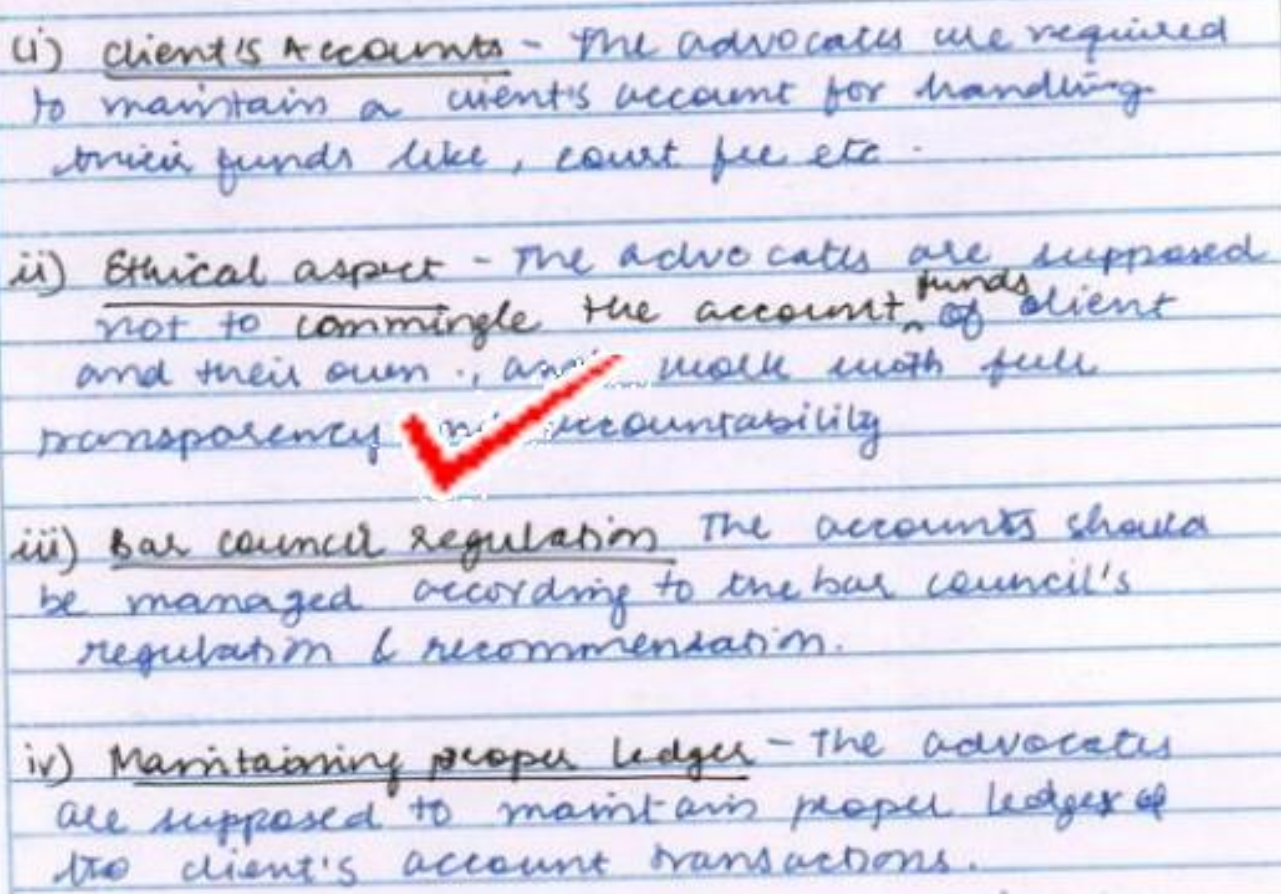 (i) Client's Accounts - The advocates are required
to maintain a client's account for handling
their funds like, court fee etc.
ii) Ethical aspect - The advocates are supposed
not to commingle the account funds of client
and their own., and work with full
transparency accountability
iii) Bar council regulation The accounts should
be managed according to the bar council's
regulation & recommendation.
iv) Maintaining proper ledger - The advocates
are supposed to maintain proper ledger of
the client's account transactions.